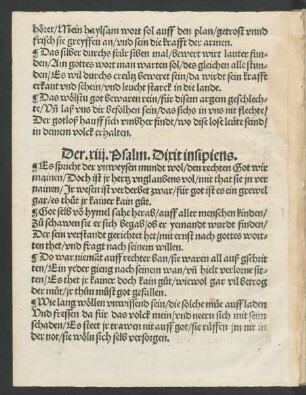 höret/Mein haylsam wort sol auff den plan/getrost vnnd
frisch sie greyffen an/vnd sein die krafft der armen.
¶Das silber durchs feür siben mal/bewert wirt lauter fun-
den/Am gottes wort man warten sol/des gleichen alle stun-
den/Es wil durchs creütz beweret sein/da wirdt sein krafft
erkant vnd schein/vnd leucht starck in die lande.
¶Das wölstu got bewaren rein/für disem argem geschlech-
te/Vn laß vns dir befolhen sein/das sichs in vns nit flechte/
Der gotloß hauff sich vmbher findt/wo dise lose leütt seind/
in deinem volck erhalten.
Der .xiij. Psalm. Dixit insipiens.
¶Es spricht der vnweysen mundt wol/den rechten Got wir
mainen/Doch ist jr hertz vnglaubens vol/mit that sie jn ver
nainen/Jr wesen ist verderbet zwar/für got ist es ein grewel
gar/es thüt jr kainer kain güt.
¶Got selb võ hymel sahe herab/auff aller menschen kinden/
Zü schawen sie er sich begab/ob er yemandt wurdt finden/
Der sein verstandt gerichtet het/mit ernst nach gottes wort-
ten thet/vnd fragt nach seinem willen.
¶Do war niemãt auff rechter ban/sie waren all auß gschrit
ten/Ein yeder gieng nach seinem wan/vñ hielt verlorne sit-
ten/Es thet jr kainer doch kain güt/wiewol gar vil betrog
der müt/jr thün müst got gefallen.
¶Wie lang wöllen vnwissend sein/die solche müe auff laden
Vnd fressen da für das volck mein/vnd neern sich mit seim
schaden/Es steet jr trawen nit auff got/sie rüffen jm nit in
der not/sie wöln sich selb versorgen.